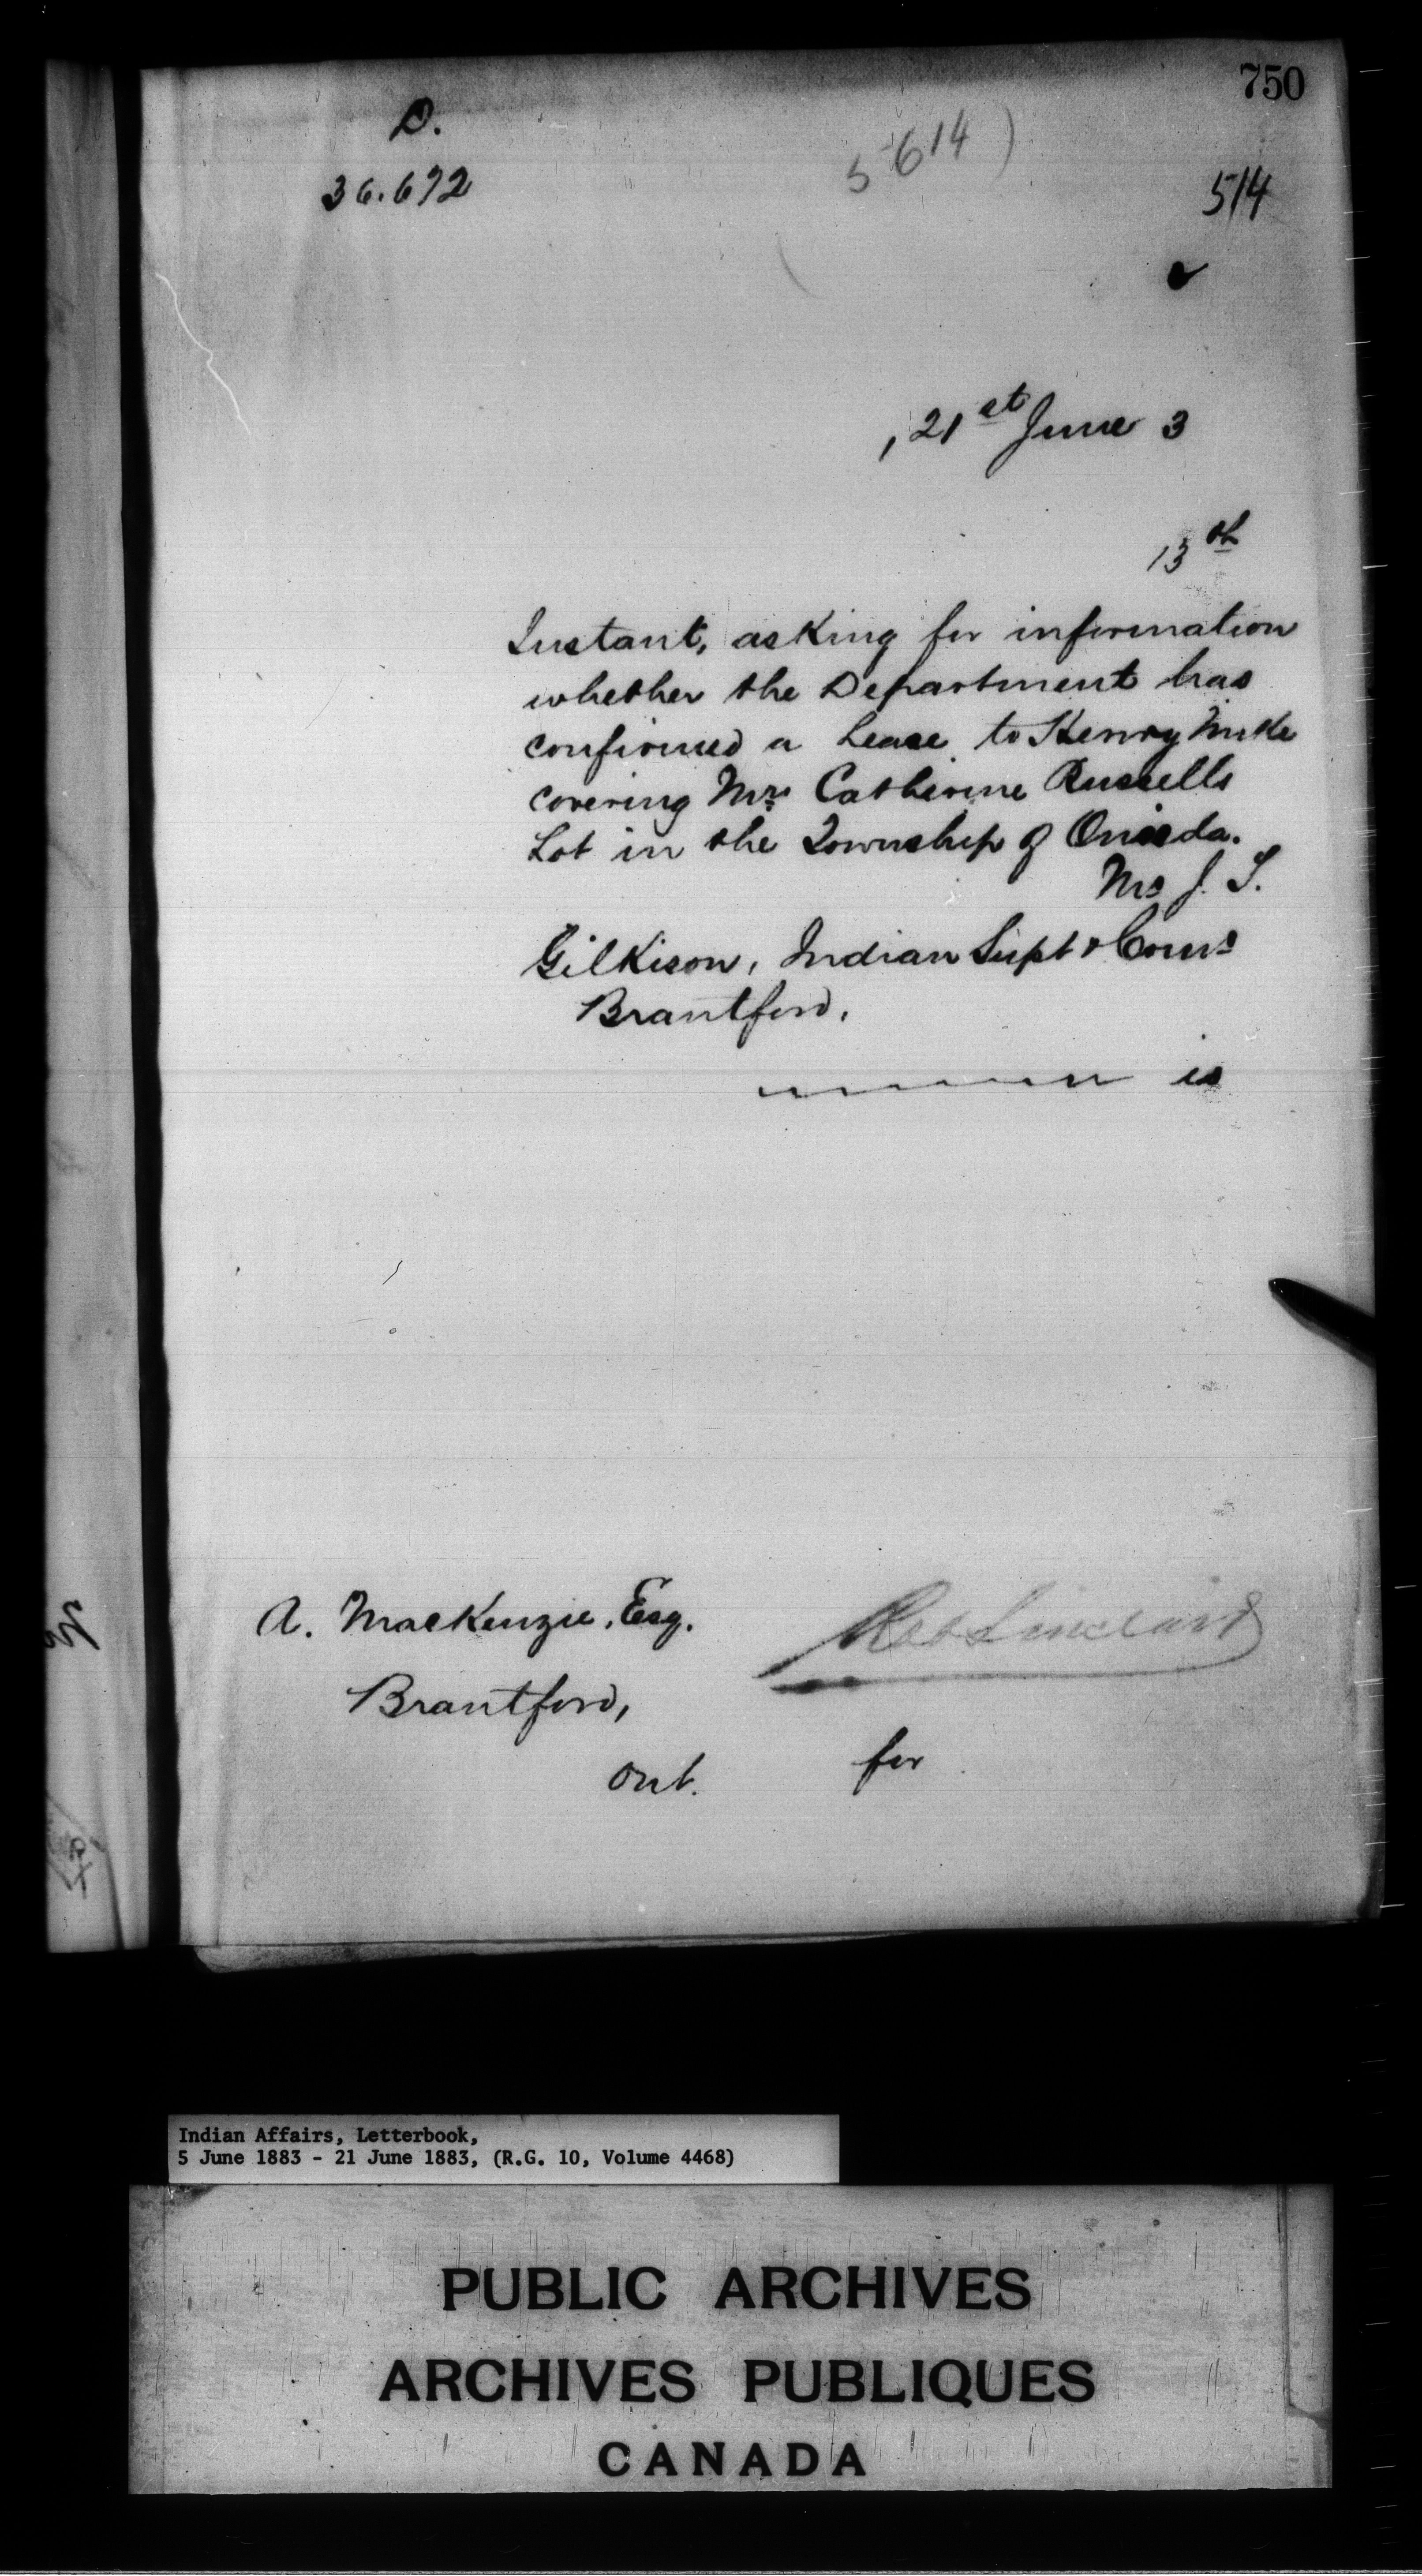 750
D.
36.672
5614)
514
, 21st June 3
13th
Instant, asking for information
whether the Department has
confirmed a Lease to Henry
covering Mrs Catherine Russells
Lot in the Township of Oneida.
Mr J. T.
Gilkison, Indian Supt & Comr
Brantford.
is
A. MacKenzie, Esq.
Brantford,
Ont.
Rob Sinclair
for
Indian Affairs, Letterbook,
5 June 1883 - 21 June 1883, (R.G. 10, Volume 4468)
PUBLIC ARCHIVES
ARCHIVES PUBLIQUES
CANADA